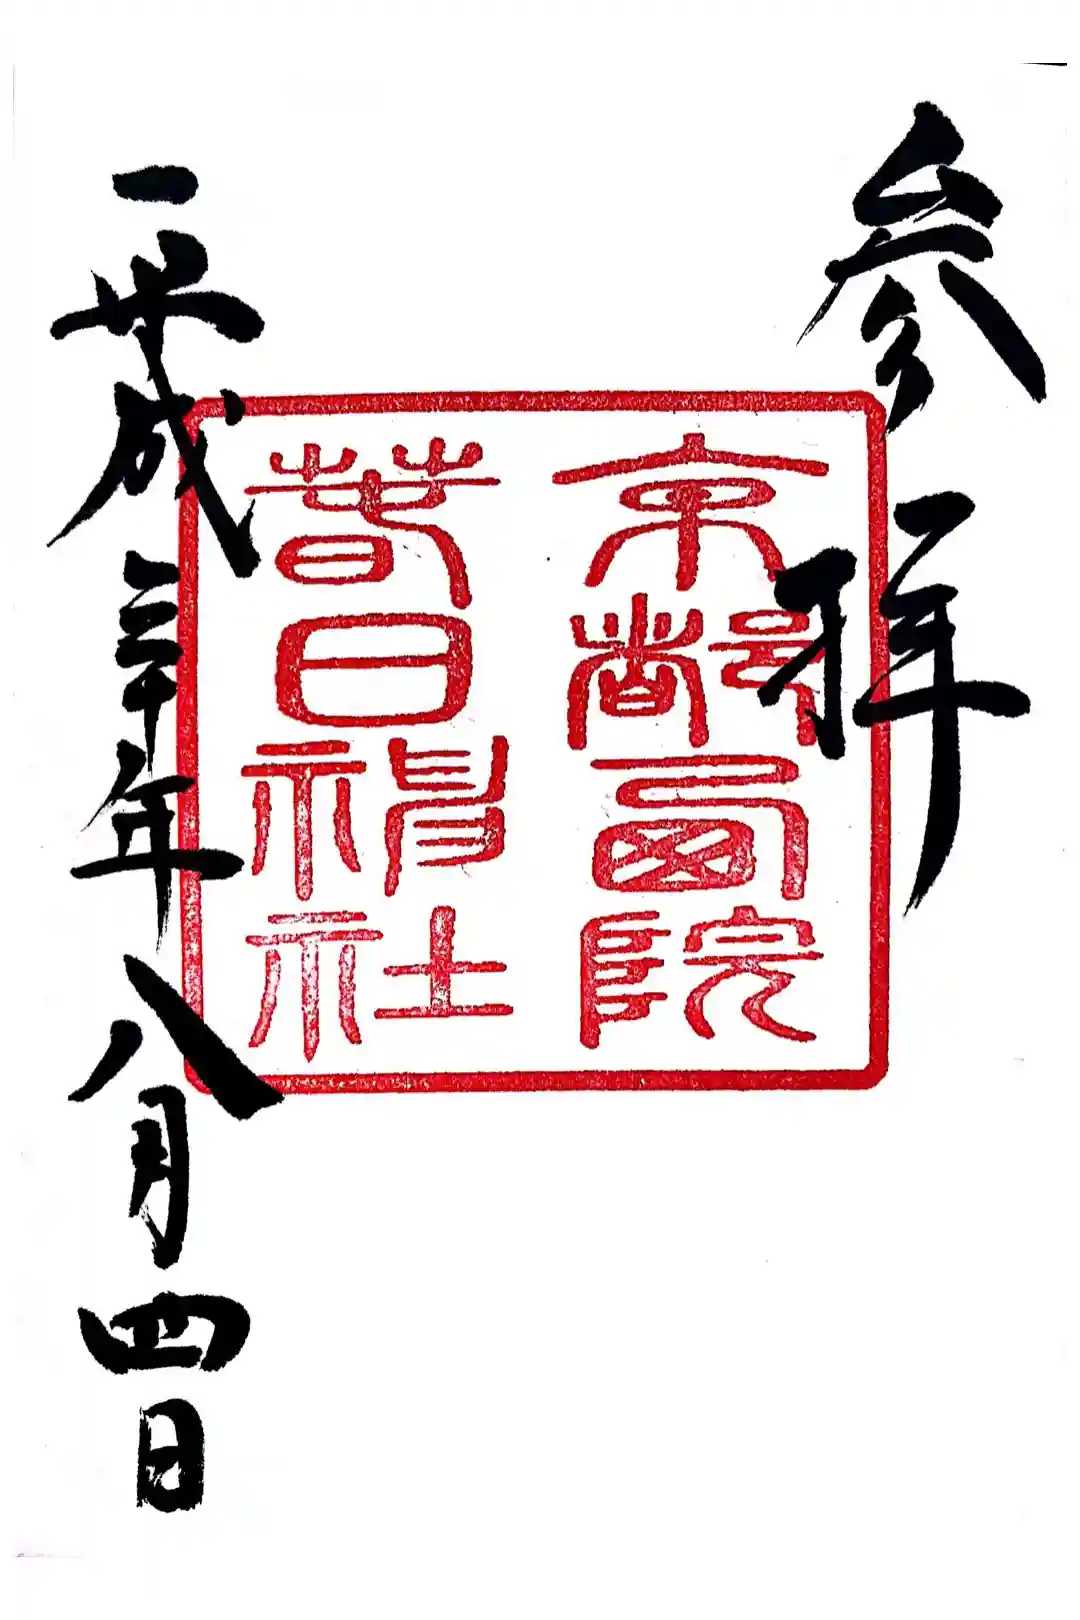 参拝
京都西院
春日神社
平成三十年八月四日